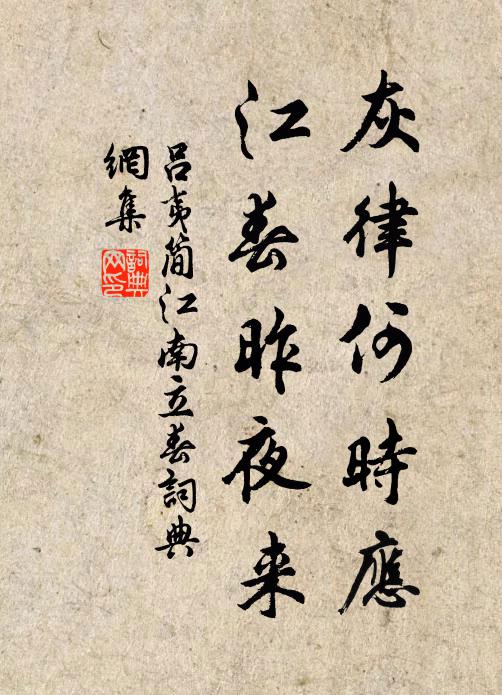 灰律何時應
江春昨夜来
吕夷簡江南立春詞典
網集
詞典
网印